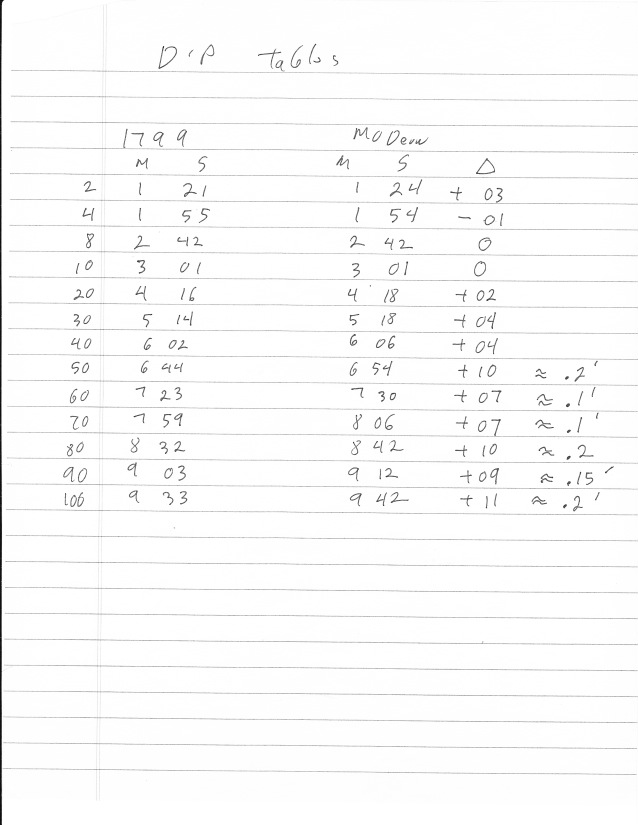 Dip Tables
1799 Modern
M S M S Δ
2 1 21 1 24 + 03
4 1 55 1 54 - 01
8 2 42 2 42 0
10 3 01 3 01 0
20 4 16 4 18 + 02
30 5 14 5 18 + 04
40 6 02 6 06 + 04
50 6 44 6 54 + 10 ≈ .2'
60 7 23 7 30 + 07 ≈ .1'
70 7 59 8 06 + 07 ≈ .1'
80 8 32 8 42 + 10 ≈ .2
90 9 03 9 12 + 09 ≈ .15'
100 9 33 9 42 + 11 ≈ .2'